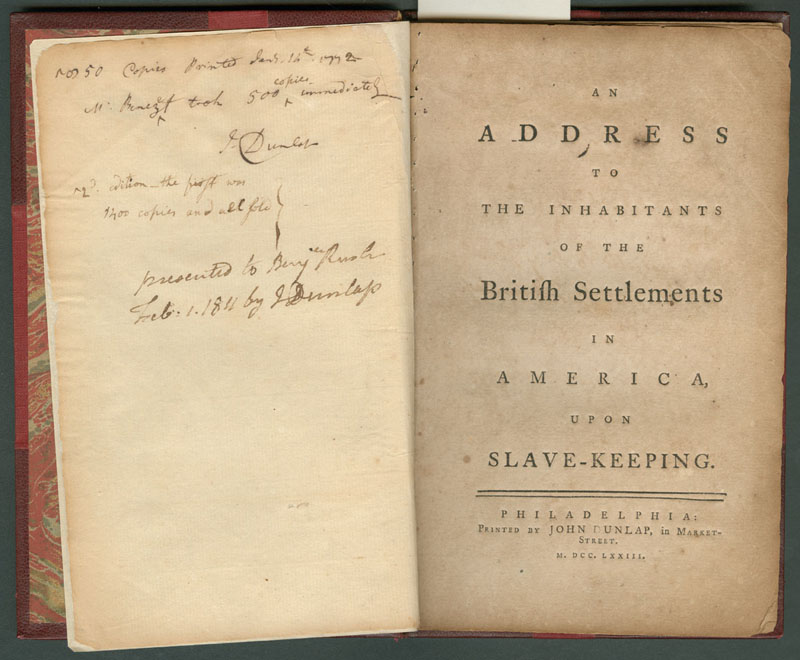 50 Copies Printed Jany. 14th 1772
Mr. Benezet took 500 copies immediately
J. Dunlap
2d. edition—the first was
1200 copies and all sold
presented to Benjn. Rush
Feb. 1. 1811 by J Dunlap
AN
ADDRESS
TO
THE INHABITANTS
OF THE
Britiſh Settlements
IN
AMERICA,
UPON
SLAVE-KEEPING.
PHILADELPHIA:
PRINTED BY JOHN DUNLAP, in MARKET-
STREET.
M. DCC. LXXIII.